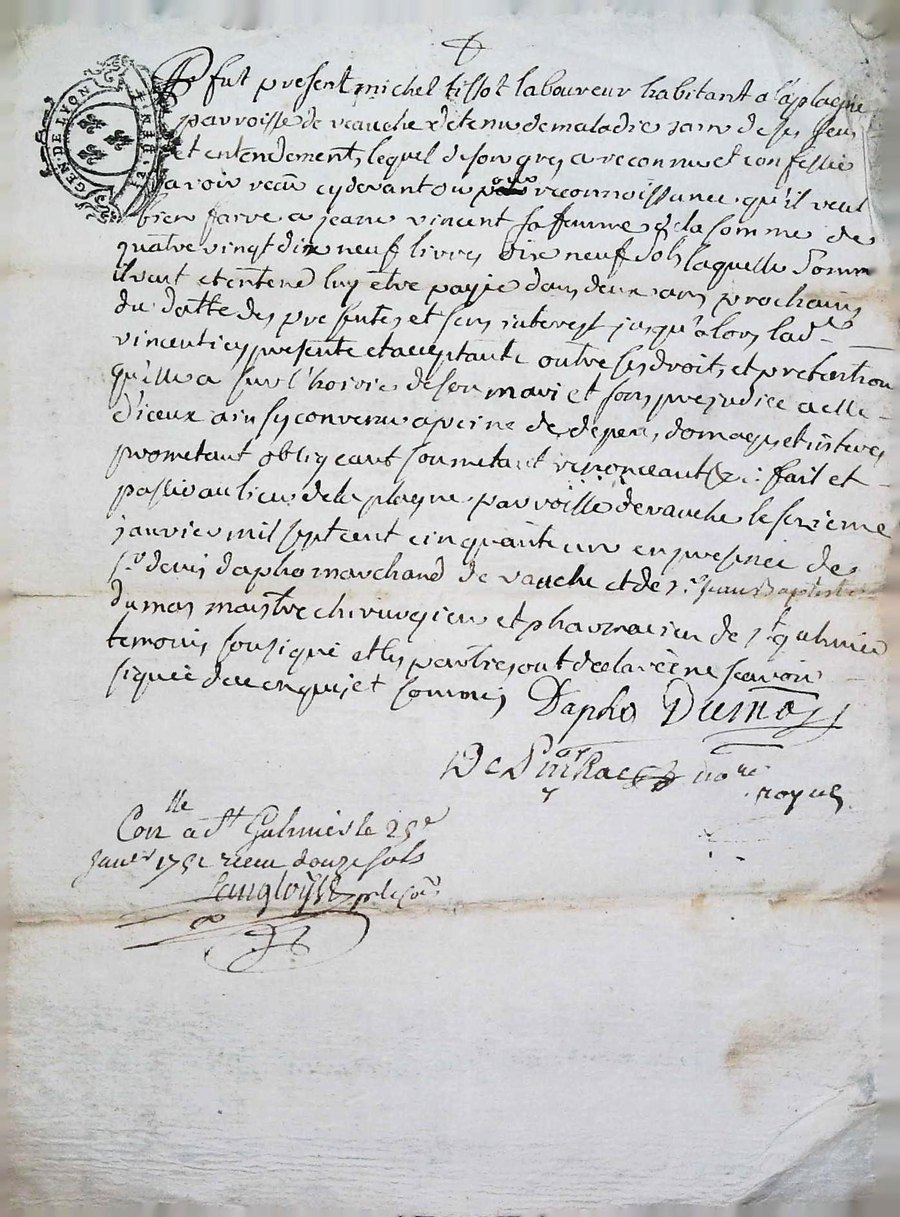 GEN. DE LYON
fut present michel tissot laboureur habitant a la plagne
parroisse de veauche detenu de maladie sain de ses sens
et entendement, lequel de son gres a reconnu et confessé
avoir receu cydevant ou par reconnoissance qu'il veut
bien faire a jeane vincent sa femme la somme de
quatre vingt dix neuf livres dix neuf sols laquelle somme
il veut et entend luy etre payée dans deux ans prochains
du datte des presentes, et sans interest jusqu'alors lad.
vincent icy presente et acceptante outre ses droits et pretentions
qu'elle a sur l'hoirie de son mari et sans prejudice a elle
d'iceux ainsy convenu a peine de depens, domages et interes
prometant obligeant soumetant renonceant &c: fait et
passé au lieu de la plagne parroisse de vauche le sezieme
janvier mil sept cent cinquante un en presence de
sr. denis dapho marchand de vauche et de sr. jean Baptiste
dumas maistre chirurgien et pharmacien de st. galmier
temoins sousigné et les parties ont declaré ne scavoir
signée de ce enquis et sommés Dapho Dumas
nore
royal
Conlle a St Galmier le 25e
Janer 1751 receu douze sols